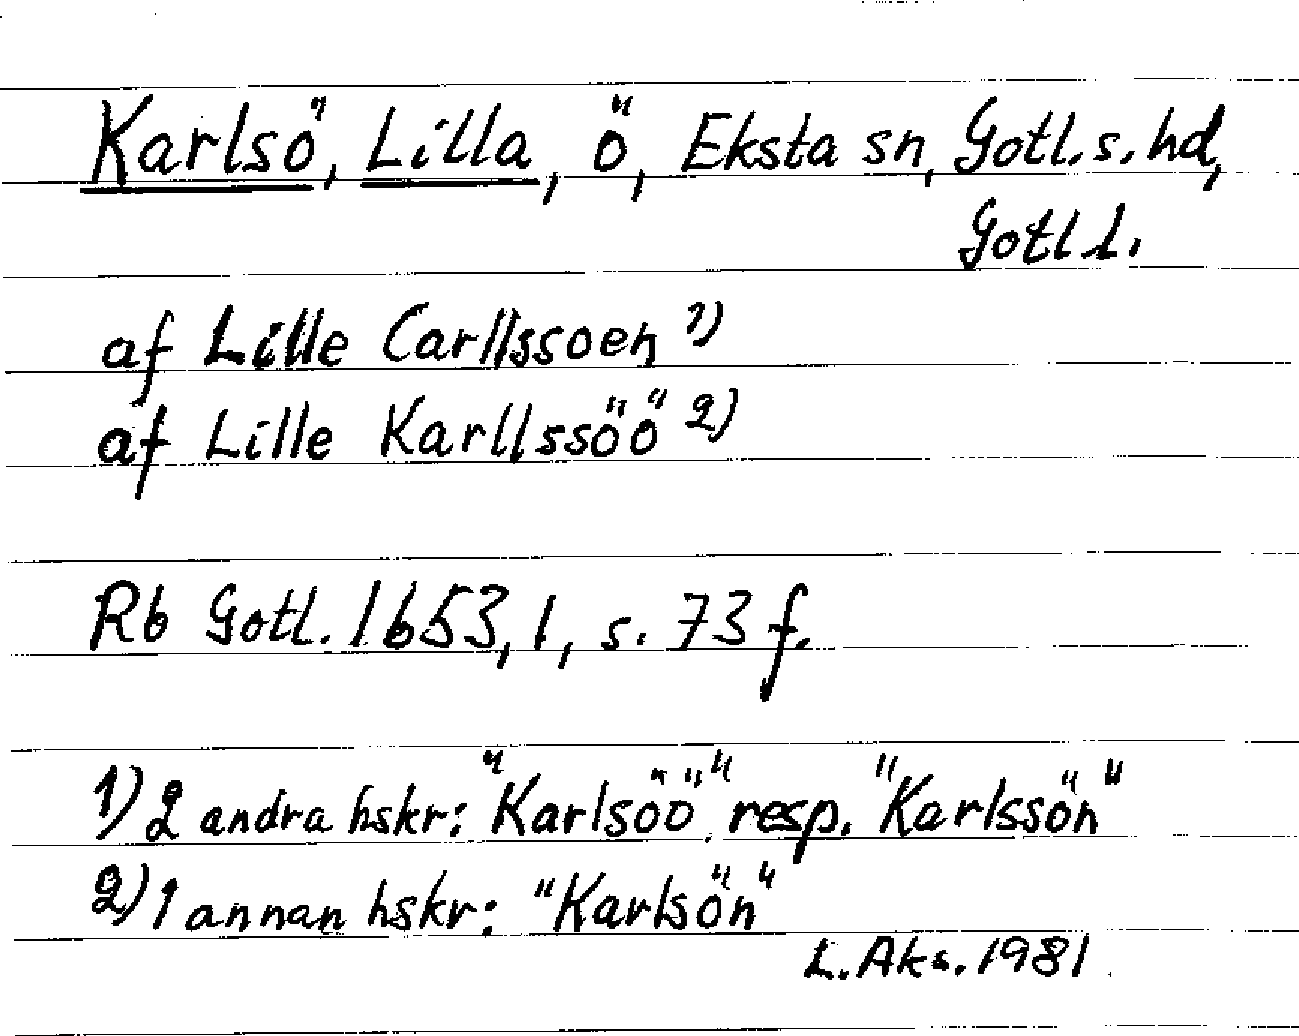 Karlsö, Lilla, ö, Eksta sn, Gotl. s. hd,
Gotl l.
af Lille Carllssoen 1)
af Lille Karllssöö 2)
Rb Gotl. 1653, 1, s. 73 f.
1) 2 andra hskr: "Karlsöö" resp. "Karlssön"
2) 1 annan hskr: "Karlsön"
L. Aks. 1981